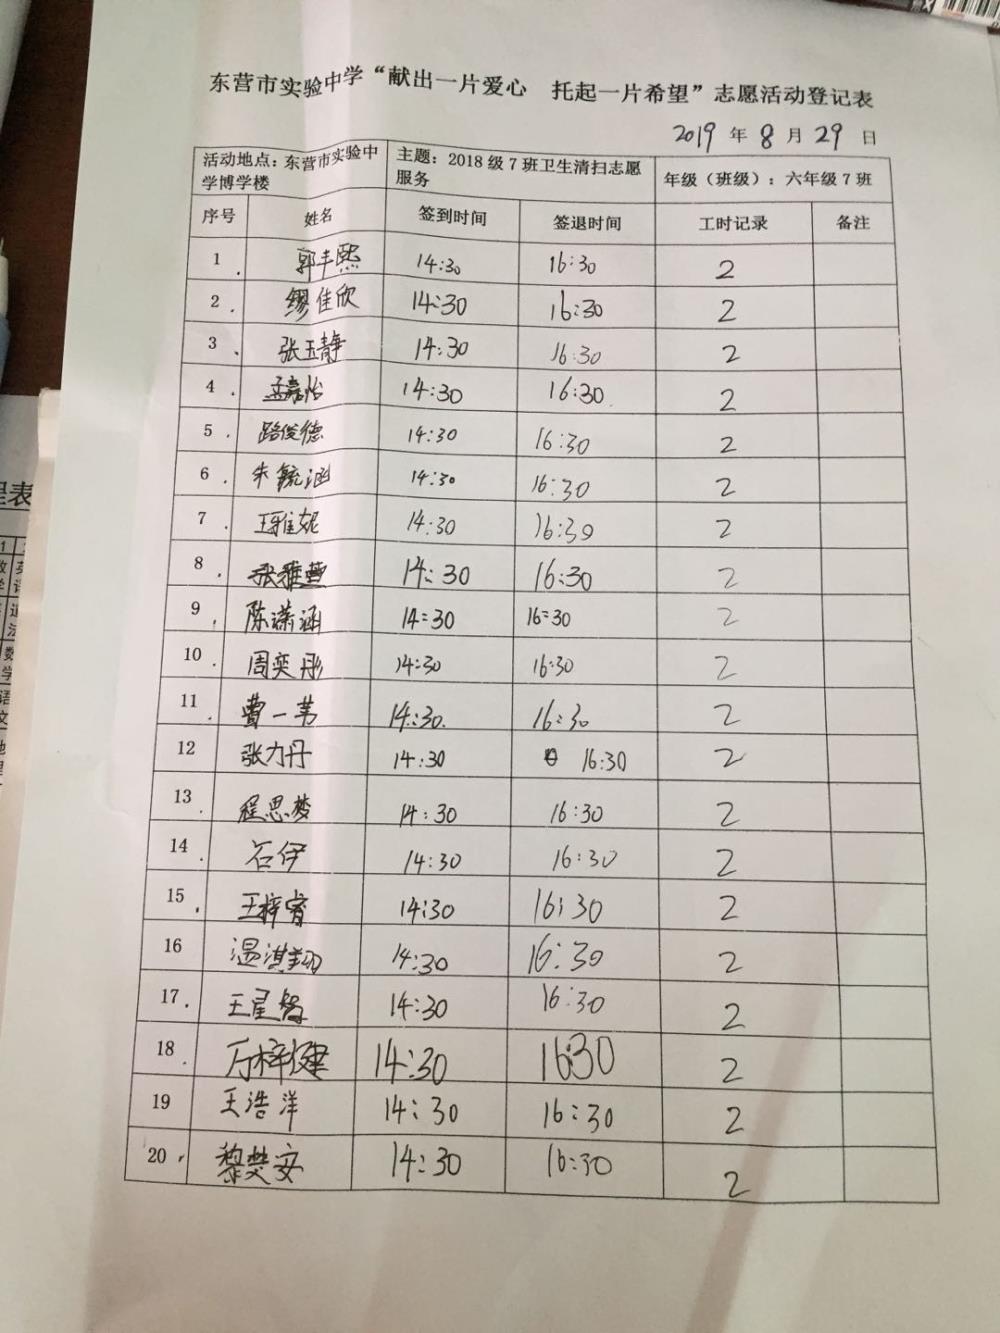 东营市实验中学“献出一片爱心 托起一片希望”志愿活动登记表
2019 年 8 月 29 日
活动地点：东营市实验中学博学楼 主题：2018 级 7 班卫生清扫志愿服务 年级（班级）：六年级 7 班
序号 姓名 签到时间 签退时间 工时记录 备注
1 郭丰熙 14:30 16:30 2
2 缪佳欣 14:30 16:30 2
3 张玉静 14:30 16:30 2
4 孟嘉怡 14:30 16:30 2
5 路俊德 14:30 16:30 2
6 朱毓涵 14:30 16:30 2
7 王雅妮 14:30 16:30 2
8 张雅萱 14:30 16:30 2
9 陈潇涵 14:30 16:30 2
10 周奕彤 14:30 16:30 2
11 费一苇 14:30 16:30 2
12 张力丹 14:30 16:30 2
13 程思梦 14:30 16:30 2
14 石伊 14:30 16:30 2
15 王梓睿 14:30 16:30 2
16 温淇翔 14:30 16:30 2
17 王星智 14:30 16:30 2
18 万梓健 14:30 16:30 2
19 王浩洋 14:30 16:30 2
20 黎樊安 14:30 16:30 2
程表